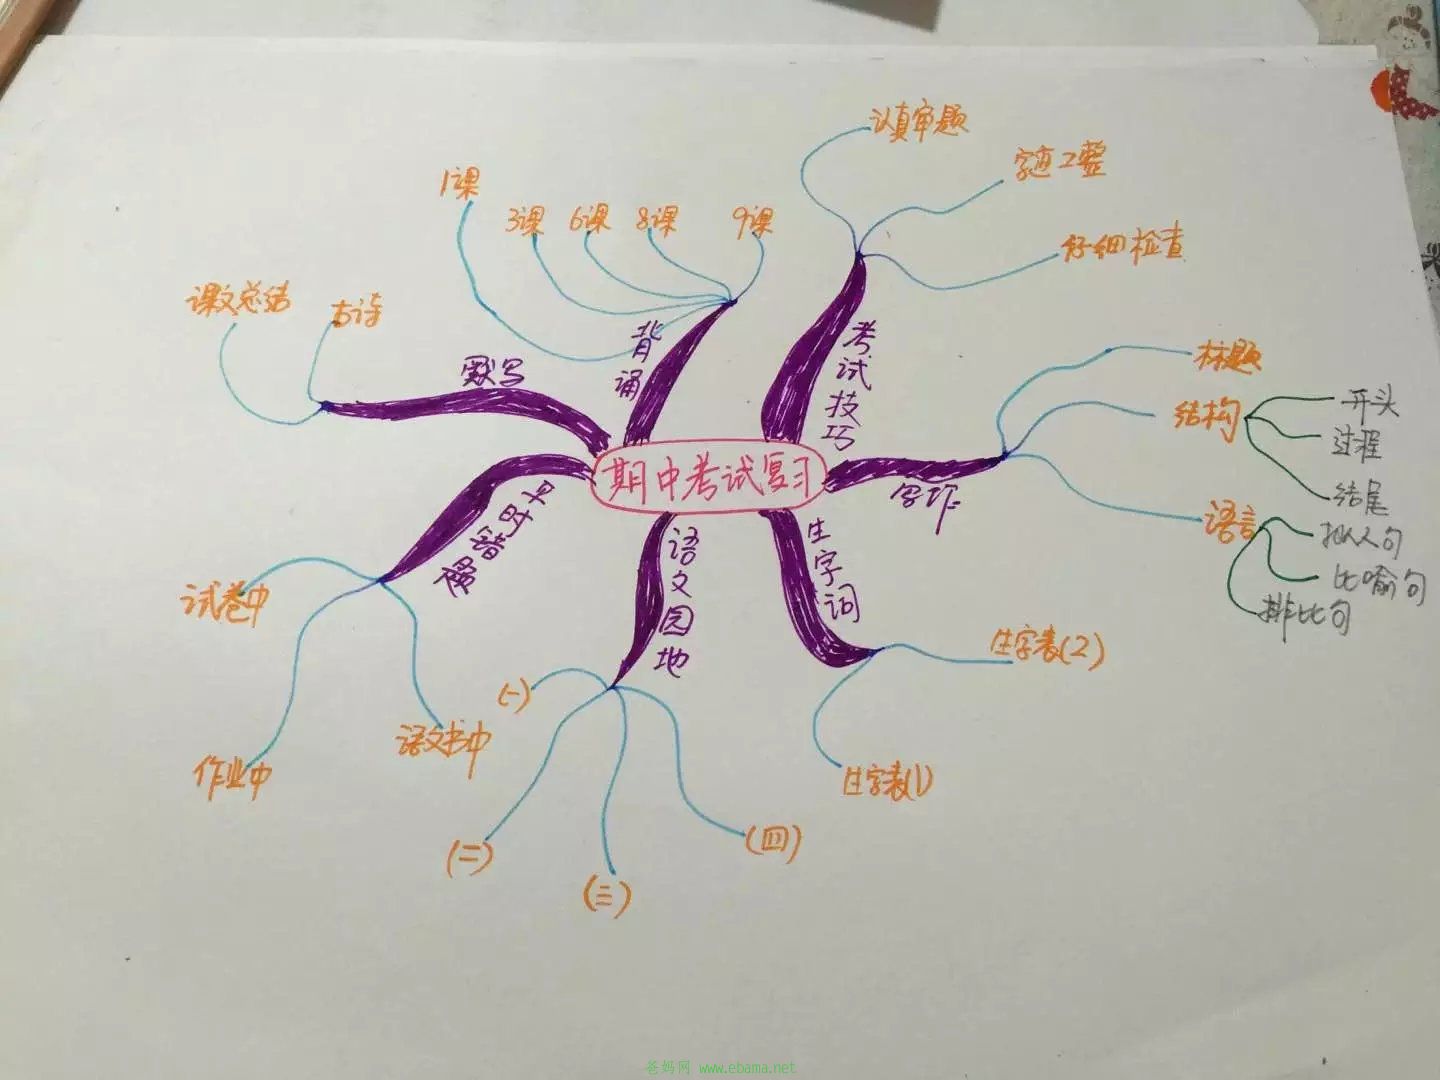 期中考试复习
考试技巧
认真审题
字迹工整
仔细检查
写作
标题
结构
开头
过程
结尾
语言
拟人句
比喻句
排比句
生字词
生字表(2)
生字表(1)
语文园地
(一)
(二)
(三)
(四)
平时错
试卷中
作业中
语文书中
默写
课文总结
古诗
背诵
1课
3课
6课
8课
9课
爸妈网 www.ebama.net